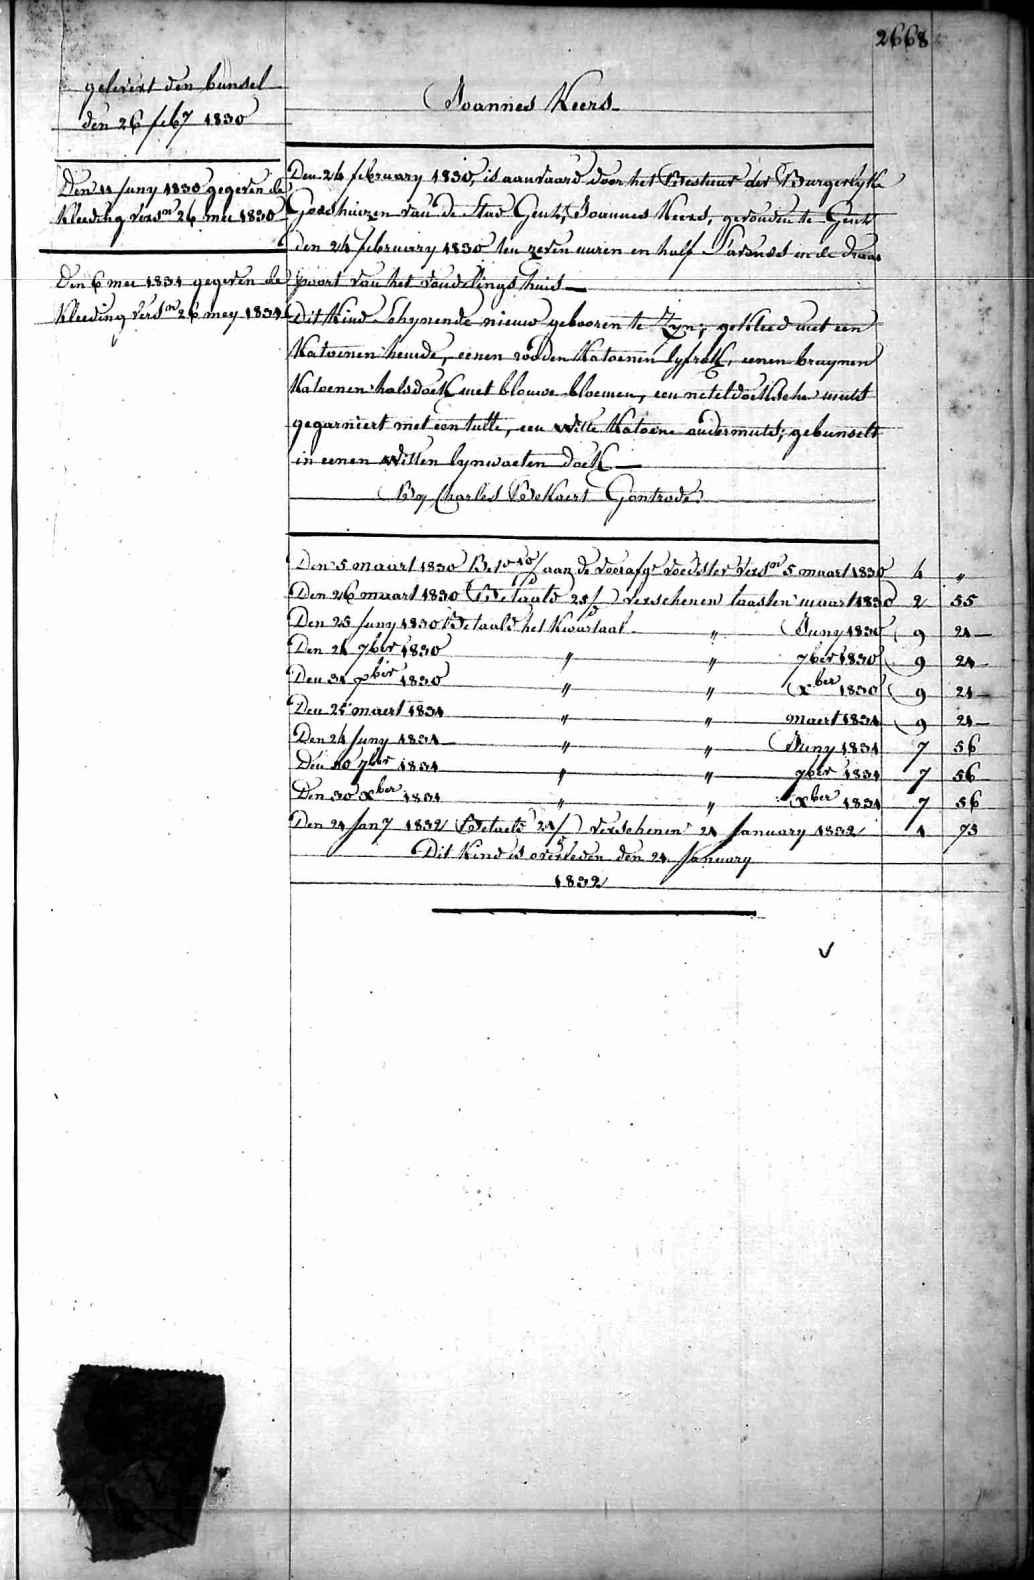 2668
gelevert den bunsel
den 26 feb7 1830
Joannes Keers
Den 11 Juny 1830 gegeven de
kleeding vers^en 26 mei 1830
Den 6 mei 1831 gegeven de
kleeding vers^en 26 mey 1831
Den 24 february 1830, is aanvaard door het Bestuur der Burgerlyke
Godshuizen van de Stad Gent, Joannes Keers, gevonden te Gent
den 24 february 1830 ten zeven uuren en half s'avonds in de draai
poort van het vondelings huis
Dit Kind schynende nieuw gebooren te Zyn; gekleed met een
Katoenen hemde, eenen rooden Katoenen lyfrok, eenen bruynen
Katoenen halsdoek met blouwe bloemen, een neteldoeksche muts
gegarniert met een tulle, een witte Katoene ondermuts; gebunselt
in eenen witten lynwaeten doek
By Charles Bekaert Gontrode
Den 5 maart 1830 aan de voorafg^e voedster vers^en 5 maart 1830 4 "
Den 26 maart 1830 Betaald 25/ verschenen laasten maart 1830 2 55
Den 25 Juny 1830 Betaald het Kwartaal " Juny 1830 9 24
Den 24 7ber 1830 " " 7ber 1830 9 24
Den 31 xber 1830 " " xber 1830 9 24
Den 25 maert 1831 " " maert 1831 9 24
Den 24 Juny 1831 " " Juny 1831 7 56
Den 30 7ber 1831 " " 7ber 1831 7 56
Den 30 xber 1831 " " xber 1831 7 56
Den 24 Jan7 1832 Betaeld 24/ verschenen 24 January 1832 1 73
Dit Kind is overleden den 24 January
1832